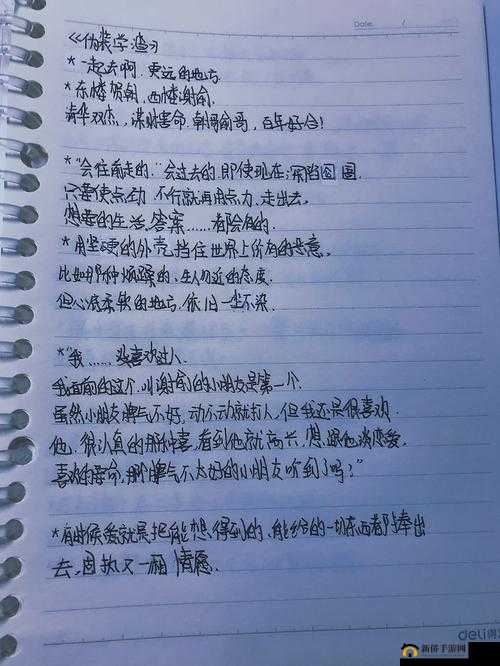 Date. /
<<伪装学渣>>
*一起去啊.更远的地方.
*东楼贺朝,西楼谢俞.
清华双杰,谋财害命.朝哥俞哥,百年好合!
*“会往前走的.”会过去的,即使现在深陷囹圄.
只要使点劲,不行就再用点力,走出去.
想要的生活,答案……都会有的.
*用坚硬的外壳,挡住世界上所有的恶意.
比如那种烦躁的、生人勿近的态度.
但心底柔软的地方.依旧一尘不染.
*“我……没喜欢过人.
我面前的这个.叫谢俞的小朋友是第一个.
虽然小朋友脾气不好,动不动就打人,但我还是很喜欢.
他.很认真的那种喜,看到他就,想跟他谈恋爱.
喜欢的要命,那个脾气不太好的小朋友听到了吗?”
*有时候爱就是把能想得到的、能给的一切东西都捧出
去,固执又一厢情愿.
deli得
新侨手游网